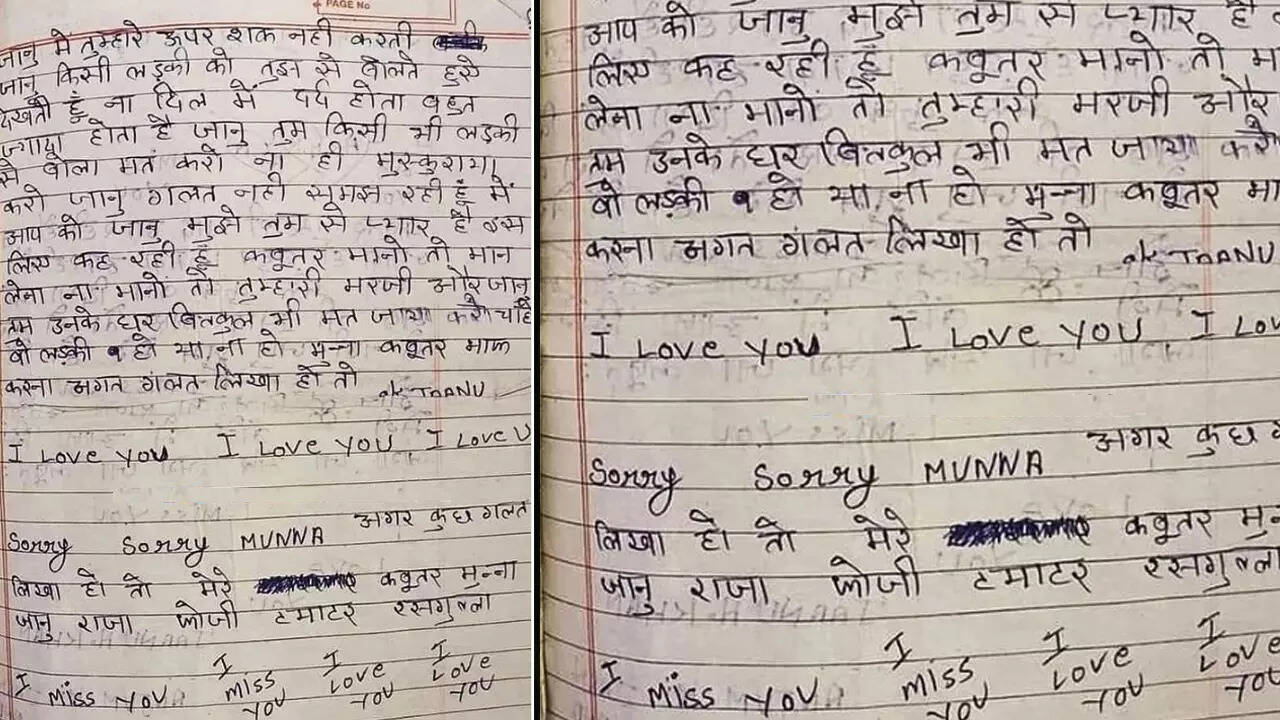 PAGE No
जानु मे तुम्हारे ऊपर शक नही करती
जानु किसी लड़की को तुझ से बोलते हुऐ
देखती हूँ ना दिल में दर्द होता बहुत
ज्याद्या होता है जानु तुम किसी भी लड़की
से बोला मत करो ना ही मुस्कुराया
करो जानु गलत नही समझ रही हूँ में
आप को जानु मुझे तुम से प्यार है इस
लिए कह रही हूँ कबूतर मानो तो मान
लेना ना मानो तो तुम्हारी मरजी और जानु
तुम उनके घर बिलकुल भी मत जाया करो चाहे
वो लड़की हो या ना हो मुन्ना कबूतर माफ
करना अगत गलत लिखा हो तो
TOANU
I Love you I Love YOU, I Love U
Sorry Sorry MUNNA अगर कुछ गलत
लिखा हो तो मेरे कबूतर मुन्ना
जानु राजा फोजी टमाटर रसगुल्ला
I Miss you I Miss you I Love you I Love you
आप को जानु मुझे तुम से प्यार है
लिए कह रही हूँ कबूतर मानो तो म
लेना ना मानो तो तुम्हारी मरजी और
तुम उनके घर बिलकुल भी मत जाया करो
वो लड़की हो या ना हो मुन्ना कबूतर मा
करना अगत गलत लिखा हो तो
TOANU
I Love you I Love YOU, I Lov
Sorry Sorry MUNNA अगर कुछ ग
लिखा हो तो मेरे कबूतर मु
जानु राजा फोजी टमाटर रसगुल्ला
I Miss you I Miss you I Love you I Love you